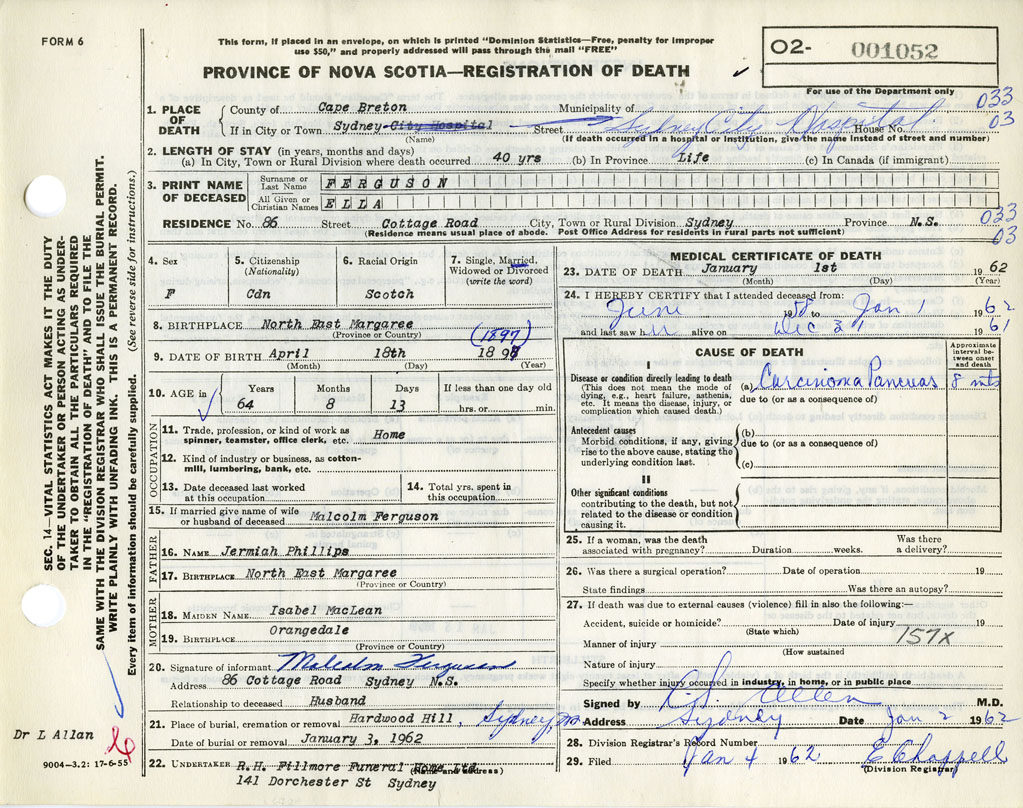 FORM 6
This form, if placed in an envelope, on which is printed "Dominion Statistics—Free, penalty for improper
use $50," and properly addressed will pass through the mail "FREE"
O2- 001052
PROVINCE OF NOVA SCOTIA—REGISTRATION OF DEATH
For use of the Department only
033
03
1. PLACE OF DEATH
County of Cape Breton Municipality of
If in City or Town Sydney City Hospital Street Sydney City Hospital House No.
(Name) (If death occurred in a hospital or institution, give the name instead of street and number)
2. LENGTH OF STAY (in years, months and days)
(a) In City, Town or Rural Division where death occurred 40 yrs (b) In Province Life (c) In Canada (if immigrant)
3. PRINT NAME OF DECEASED
Surname or Last Name FERGUSON
All Given or Christian Names ELLA
RESIDENCE No. 86 Street Cottage Road City, Town or Rural Division Sydney Province N.S.
(Residence means usual place of abode. Post Office Address for residents in rural parts not sufficient)
033
03
4. Sex
F
5. Citizenship
(Nationality)
Cdn
6. Racial Origin
Scotch
7. Single, Married, Widowed or Divorced
(write the word)
8. BIRTHPLACE North East Margaree
(Province or Country)
(1897)
9. DATE OF BIRTH April 18th 1898
(Month) (Day) (Year)
10. AGE in
Years Months Days If less than one day old
64 8 13 hrs. or min.
OCCUPATION
11. Trade, profession, or kind of work as
spinner, teamster, office clerk, etc. Home
12. Kind of industry or business, as cotton-
mill, lumbering, bank, etc.
13. Date deceased last worked
at this occupation
14. Total yrs. spent in
this occupation
15. If married give name of wife
or husband of deceased Malcolm Ferguson
FATHER
16. NAME Jermiah Phillips
17. BIRTHPLACE North East Margaree
(Province or Country)
MOTHER
18. MAIDEN NAME Isabel MacLean
19. BIRTHPLACE Orangedale
(Province or Country)
20. Signature of informant Malcolm Ferguson
Address 86 Cottage Road Sydney N.S.
Relationship to deceased Husband
21. Place of burial, cremation or removal Hardwood Hill, Sydney,
Date of burial or removal January 3, 1962
22. UNDERTAKER R.H. Fillmore Funeral Home Ltd.
(Name and address)
141 Dorchester St Sydney
MEDICAL CERTIFICATE OF DEATH
23. DATE OF DEATH January 1st 1962
(Month) (Day) (Year)
24. I HEREBY CERTIFY that I attended deceased from:
June 1958 to Jan 1 1962
and last saw h alive on Dec 31 1961
CAUSE OF DEATH
Approximate interval between onset and death
I
Disease or condition directly leading to death
(This does not mean the mode of
dying, e.g., heart failure, asthenia,
etc. It means the disease, injury, or
complication which caused death.)
(a) Carcinoma Pancreas 8 mts
due to (or as a consequence of)
Antecedent causes
Morbid conditions, if any, giving
rise to the above cause, stating the
underlying condition last.
(b)
due to (or as a consequence of)
(c)
II
Other significant conditions
contributing to the death, but not
related to the disease or condition
causing it.
25. If a woman, was the death
associated with pregnancy? Duration weeks. Was there a delivery?
26. Was there a surgical operation? Date of operation 19
State findings Was there an autopsy?
27. If death was due to external causes (violence) fill in also the following:—
Accident, suicide or homicide? Date of injury 19
(State which)
157X
Manner of injury
(How sustained
Nature of injury
Specify whether injury occurred in industry, in home, or in public place
Signed by Allen M.D.
Address Sydney Date Jan 2 1962
28. Division Registrar's Record Number
29. Filed Jan 4 1962 E Chappell
(Division Registrar)
SEC. 14—VITAL STATISTICS ACT MAKES IT THE DUTY
OF THE UNDERTAKER OR PERSON ACTING AS UNDER-
TAKER TO OBTAIN ALL THE PARTICULARS REQUIRED
IN THE "REGISTRATION OF DEATH" AND TO FILE THE
SAME WITH THE DIVISION REGISTRAR WHO SHALL ISSUE THE BURIAL PERMIT.
WRITE PLAINLY WITH UNFADING INK. THIS IS A PERMANENT RECORD.
Every item of information should be carefully supplied. (See reverse side for instructions.)
Dr L Allan
9004—3.2: 17-6-55